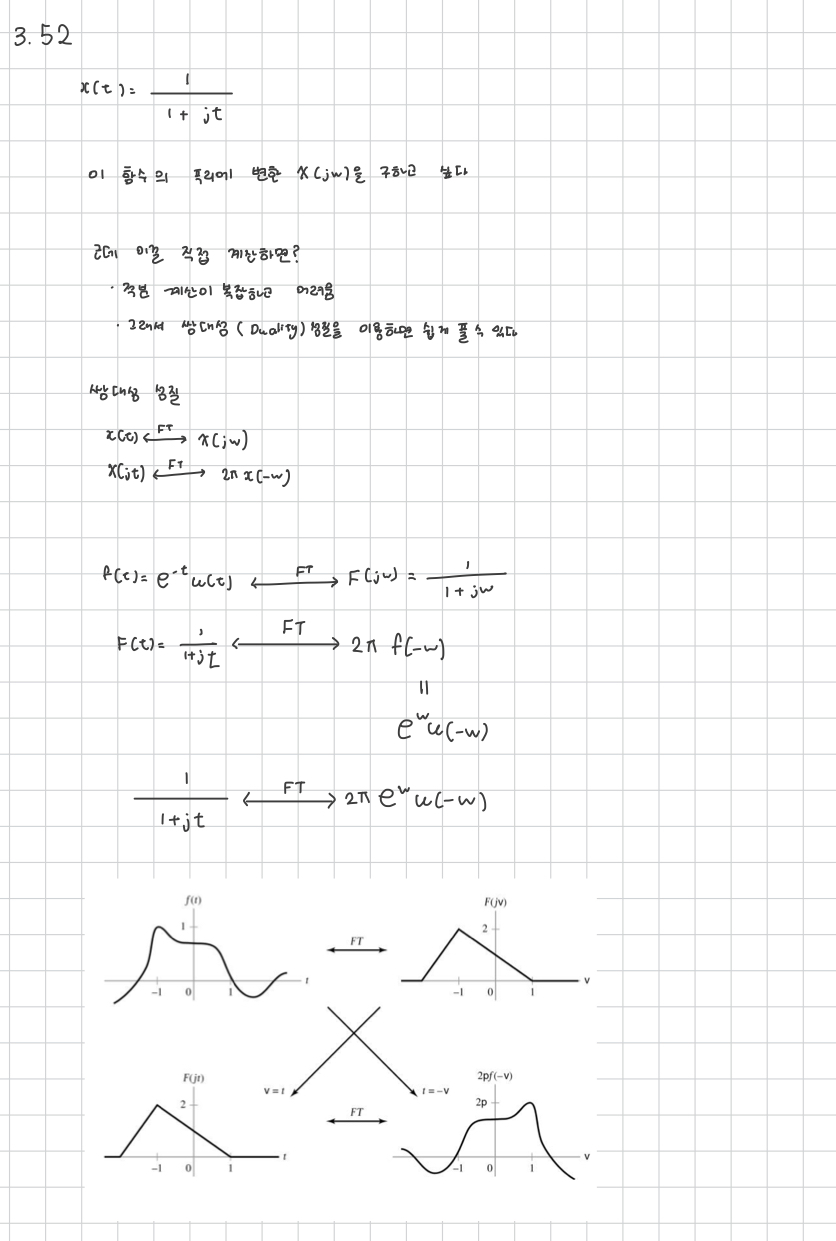 3.52
x(t) = 1 / (1 + jt)
이 함수의 푸리에 변환 X(jw)을 구하고 싶다
근데 이걸 직접 계산하면?
· 적분 계산이 복잡하고 어려움
· 그래서 쌍대성 (Duality) 성질을 이용하면 쉽게 풀 수 있다
쌍대성 성질
x(t) ←FT→ X(jw)
X(jt) ←FT→ 2π x(-w)
f(t) = e^-t u(t) ←FT→ F(jw) = 1 / (1 + jw)
F(t) = 1 / (1+jt) ←FT→ 2π f(-w)
=
e^w u(-w)
1 / (1+jt) ←FT→ 2π e^w u(-w)
f(t) 1 -1 0 1 t
FT
F(jv) 2 -1 0 1 v
v = t
t = -v
F(jt) 2 -1 0 1 t
FT
2pf(-v) 2p -1 0 1 v